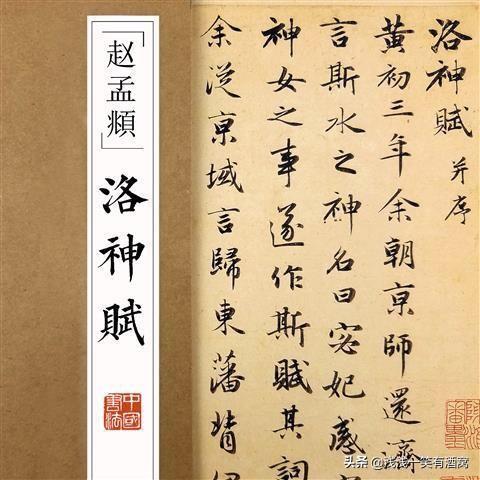 「赵孟頫」
洛神賦
中國
書法
洛神賦 并序
黃初三年余朝京師還濟
言斯水之神名曰宓妃感
神女之事遂作斯賦其詞
余從京域言歸東藩背
头条 @浅浅一笑有酒窝